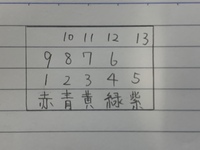 10 11 12 13
9 8 7 6
1 2 3 4 5
赤 青 黄 緑 紫